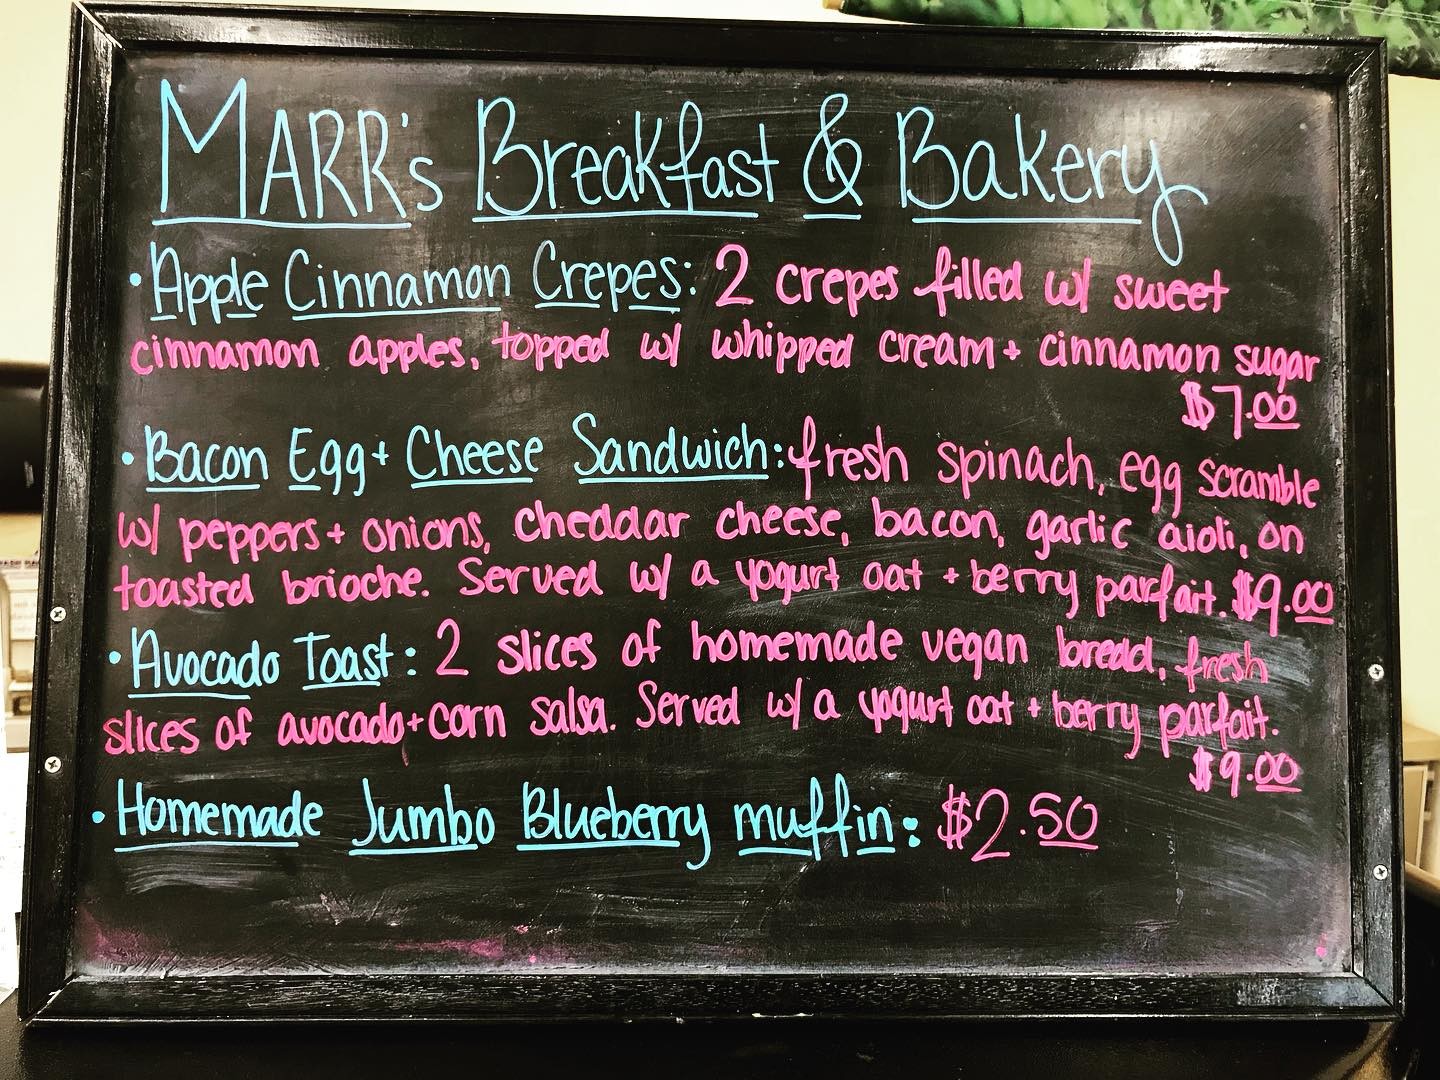 MARR's Breakfast & Bakery
• Apple Cinnamon Crepes: 2 crepes filled w/ sweet
cinnamon apples, topped w/ whipped cream + cinnamon sugar
$7.00
• Bacon Egg + Cheese Sandwich: fresh spinach, egg scramble
w/ peppers + onions, cheddar cheese, bacon, garlic aioli, on
toasted brioche. Served w/ a yogurt oat + berry parfait. $9.00
• Avocado Toast: 2 slices of homemade vegan bread, fresh
slices of avocado + corn salsa. Served w/ a yogurt oat + berry parfait.
$9.00
• Homemade Jumbo Blueberry muffin: $2.50